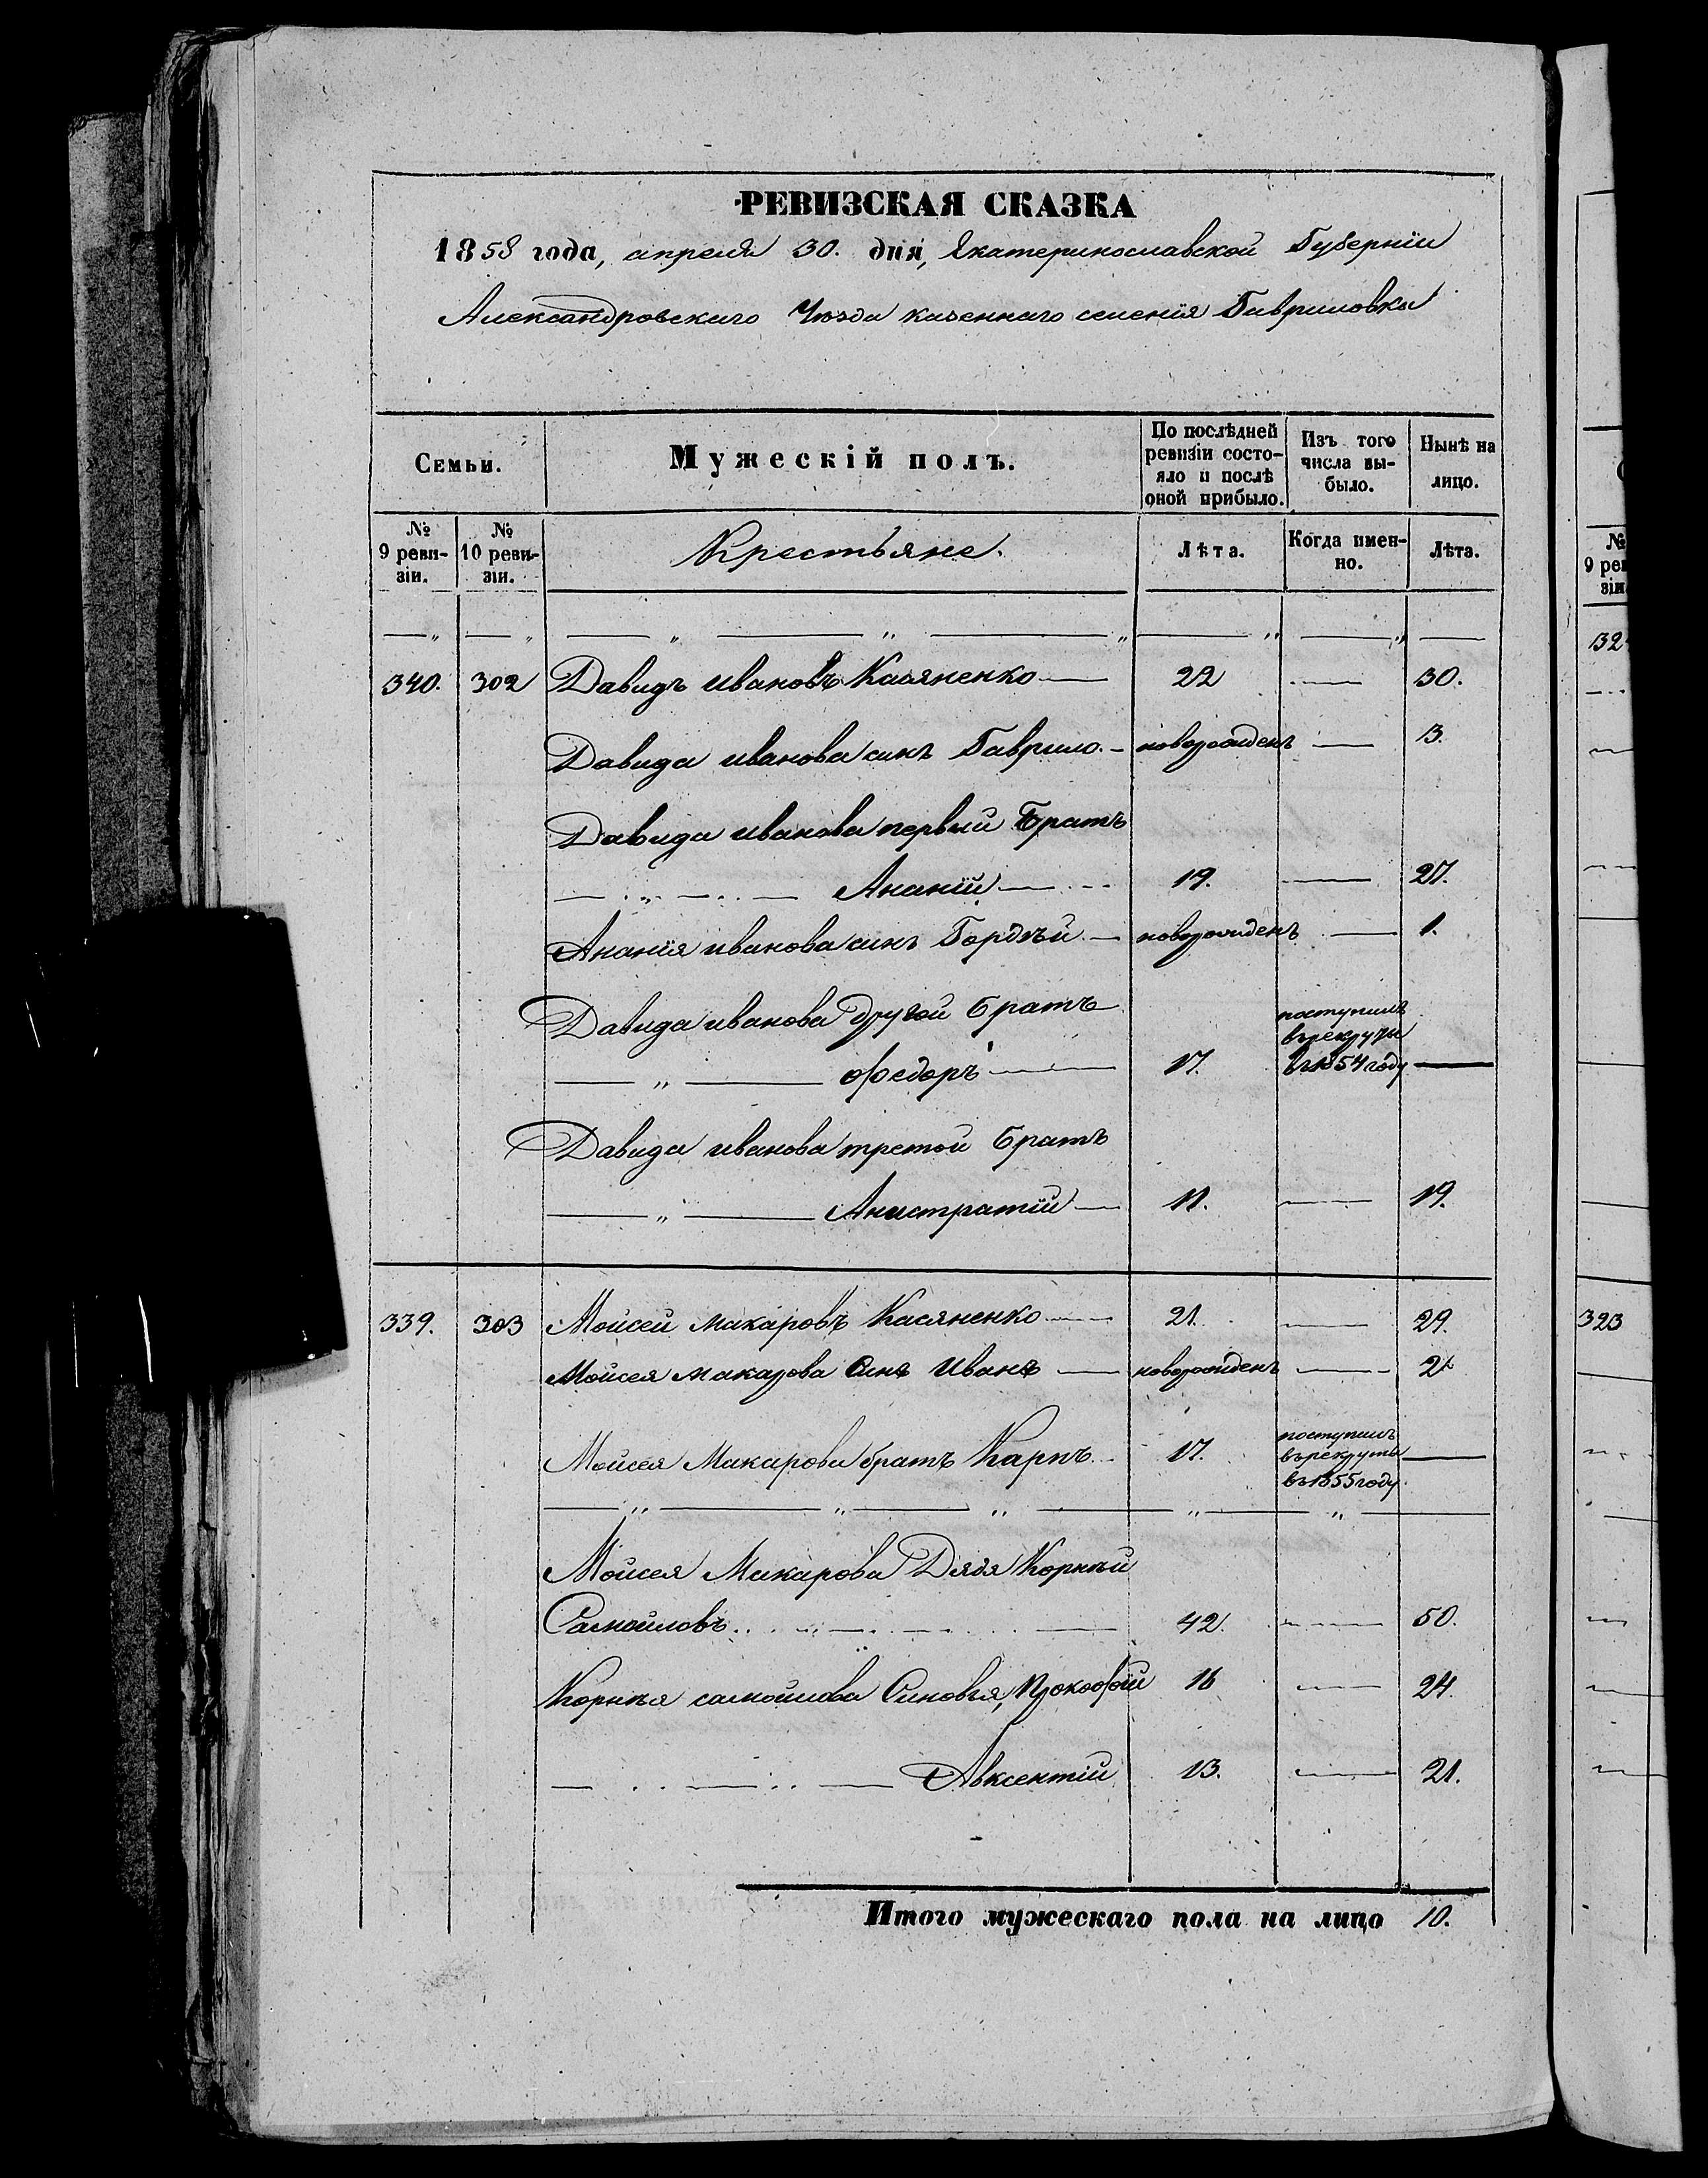 РЕВИЗСКАЯ СКАЗКА
1858 года, апреля 30. дня, Екатеринославской Губернiи
Александровскаго Уѣзда казеннаго селенiя Гавриловки
Семьи.
Мужескiй полъ.
По послѣдней ревизiи состо-яло и послѣ оной прибыло.
Изъ того числа вы-было.
Нынѣ на лицо.
№ 9 реви-зiи.
№ 10 реви-зiи.
Крестьяне.
Лѣта.
Когда имен-но.
Лѣта.
— „ — „ — „ — „ — „ — „ — „ —
340. 302 Давидъ Ивановъ Касяненко — 22 — 30.
Давида иванова синъ Гаврило. — новорожденъ — 3.
Давида иванова первый Братъ
— „ — Ананiй — 19. — 27.
Ананiя иванова синъ Гордѣй — новорожденъ — 1.
Давида иванова другой братъ
— „ — Федоръ — 17. поступилъ въ рекруты въ 1854 году —
Давида иванова третой братъ
— „ — Анистратiй — 11. — 19.
339. 303 Мойсей макаровъ Касяненко — 21. — 29.
Мойсея макарова Синъ Иванъ — новорожденъ — 2
Мойсея Макарова братъ Карпъ — 17. поступилъ въ рекруты въ 1855 году. —
— „ — „ — „ — „ — „ —
Мойсея Макарова Дядя Корнѣй
Самойловъ. — 42. — 50.
Корнѣя самойлова Синовья, Прокофiй 16 — 24.
— Авксентiй 13. — 21.
Итого мужескаго пола на лицо 10.
№
9 рев
зiи
32
323